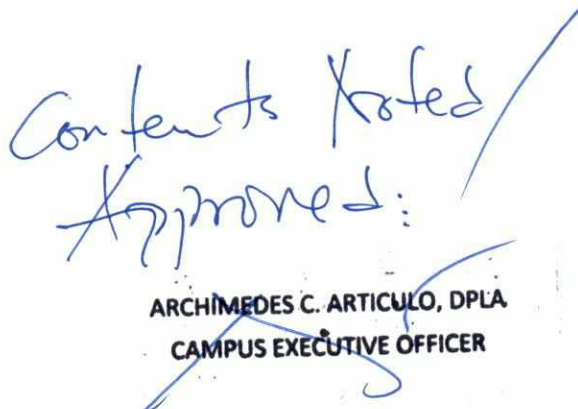 Contents Noted /
Approved:
ARCHIMEDES C. ARTICULO, DPLA
CAMPUS EXECUTIVE OFFICER